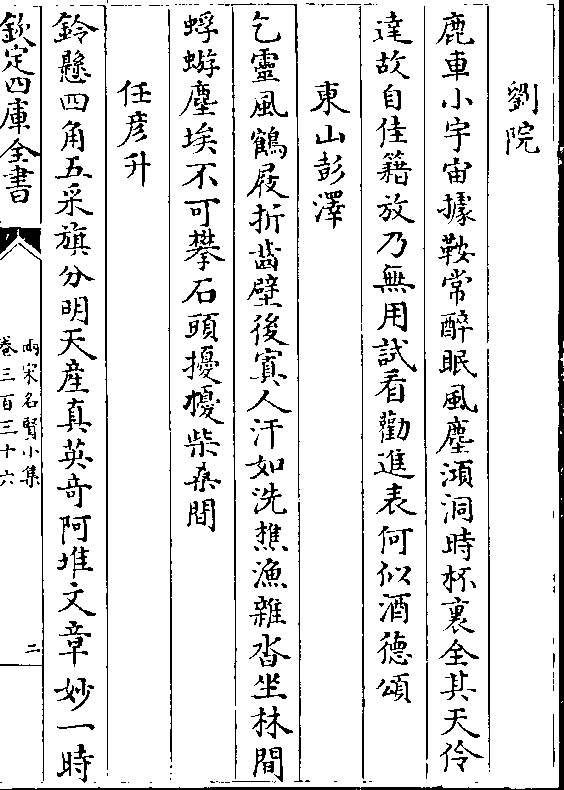 劉院
鹿車小宇宙據鞍常醉眠風塵澒洞時杯裏全其天伶
達故自佳籍放乃無用試看勸進表何似酒德頌
東山彭澤
乞靈風鶴屐折齒壁後寘人汗如洗樵漁雜沓坐林間
蜉蝣塵埃不可攀石頭擾擾柴桑間
任彦升
鈴懸四角五采旗分明天産真英奇阿堆文章妙一時
欽定四庫全書
兩宋名賢小集
卷三百三十六
二